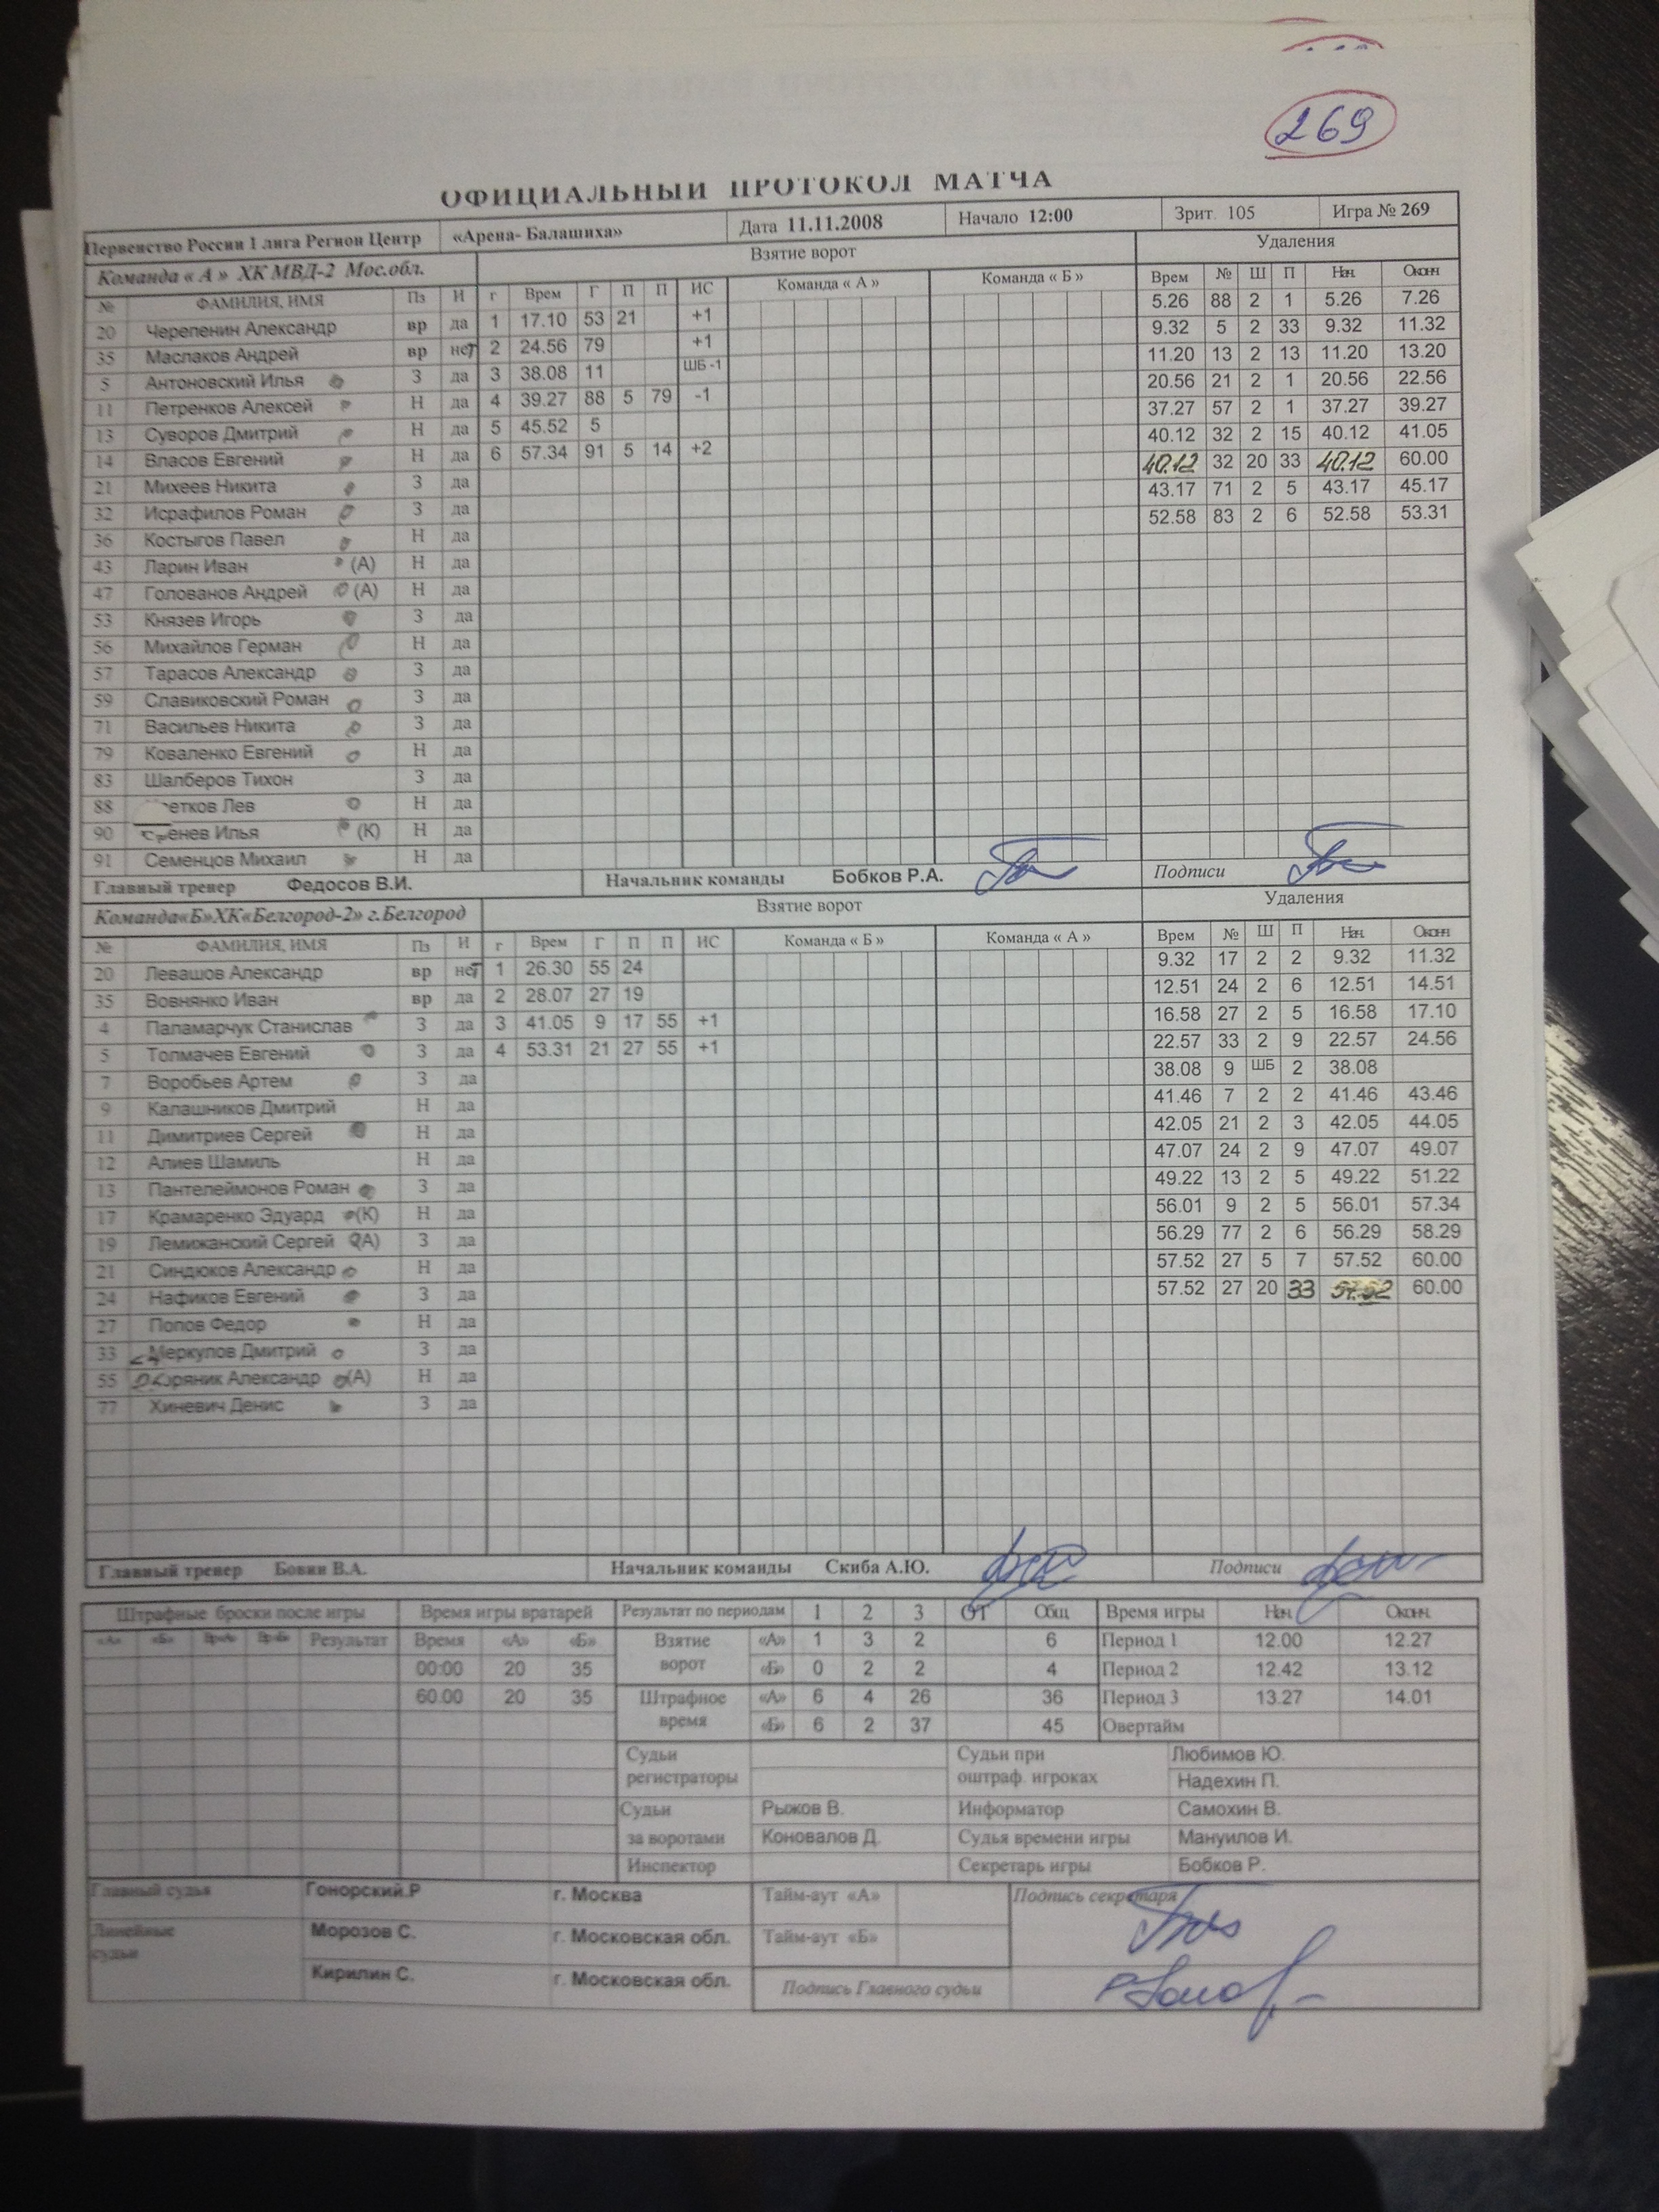 269
ОФИЦИАЛЬНЫЙ ПРОТОКОЛ МАТЧА
Первенство России 1 лига Регион Центр «Арена- Балашиха» Дата 11.11.2008 Начало 12:00 Зрит. 105 Игра № 269
Команда « А » ХК МВД-2 Мос.обл. Взятие ворот Удаления
№ ФАМИЛИЯ, ИМЯ Пз И г Врем Г П П ИС Команда « А » Команда « Б » Врем № Ш П Нач. Оконч
20 Черепенин Александр вр да 1 17.10 53 21 +1 5.26 88 2 1 5.26 7.26
35 Маслаков Андрей вр нет 2 24.56 79 +1 9.32 5 2 33 9.32 11.32
5 Антоновский Илья З да 3 38.08 11 ШБ -1 11.20 13 2 13 11.20 13.20
11 Петренков Алексей Н да 4 39.27 88 5 79 -1 20.56 21 2 1 20.56 22.56
13 Суворов Дмитрий Н да 5 45.52 5 37.27 57 2 1 37.27 39.27
14 Власов Евгений Н да 6 57.34 91 5 14 +2 40.12 32 2 15 40.12 41.05
21 Михеев Никита З да 40.12 32 20 33 40.12 60.00
32 Исрафилов Роман З да 43.17 71 2 5 43.17 45.17
36 Костыгов Павел Н да 52.58 83 2 6 52.58 53.31
43 Ларин Иван (А) Н да
47 Голованов Андрей (А) Н да
53 Князев Игорь З да
56 Михайлов Герман Н да
57 Тарасов Александр З да
59 Славиковский Роман З да
71 Васильев Никита З да
79 Коваленко Евгений Н да
83 Шалберов Тихон З да
88 Лев Н да
90 Илья (К) Н да
91 Семенцов Михаил Н да
Главный тренер Федосов В.И. Начальник команды Бобков Р.А. Подписи
Команда«Б»ХК«Белгород-2» г.Белгород Взятие ворот Удаления
№ ФАМИЛИЯ, ИМЯ Пз И г Врем Г П П ИС Команда « Б » Команда « А » Врем № Ш П Нач. Оконч
20 Левашов Александр вр нет 1 26.30 55 24 9.32 17 2 2 9.32 11.32
35 Вовнянко Иван вр да 2 28.07 27 19 12.51 24 2 6 12.51 14.51
4 Паламарчук Станислав З да 3 41.05 9 17 55 +1 16.58 27 2 5 16.58 17.10
5 Толмачев Евгений З да 4 53.31 21 27 55 +1 22.57 33 2 9 22.57 24.56
7 Воробьев Артем З да 38.08 9 ШБ 2 38.08
9 Калашников Дмитрий Н да 41.46 7 2 2 41.46 43.46
11 Димитриев Сергей Н да 42.05 21 2 3 42.05 44.05
12 Алиев Шамиль Н да 47.07 24 2 9 47.07 49.07
13 Пантелеймонов Роман З да 49.22 13 2 5 49.22 51.22
17 Крамаренко Эдуард (К) Н да 56.01 9 2 5 56.01 57.34
19 Лемижанский Сергей (А) З да 56.29 77 2 6 56.29 58.29
21 Синдюков Александр Н да 57.52 27 5 7 57.52 60.00
24 Нафиков Евгений З да 57.52 27 20 33 57.52 60.00
27 Попов Федор Н да
33 Меркулов Дмитрий З да
55 Александр (А) Н да
77 Хиневич Денис З да
Главный тренер Бовин В.А. Начальник команды Скиба А.Ю. Подписи
Штрафные броски после игры Время игры вратарей Результат по периодам 1 2 3 ОТ Общ Время игры Нач. Оконч.
«А» «Б» Результат Время «А» «Б» Взятие ворот «А» 1 3 2 6 Период 1 12.00 12.27
00:00 20 35 «Б» 0 2 2 4 Период 2 12.42 13.12
60.00 20 35 Штрафное время «А» 6 4 26 36 Период 3 13.27 14.01
«Б» 6 2 37 45 Овертайм
Судьи регистраторы Судьи при оштраф. игроках Любимов Ю.
Надехин П.
Судьи за воротами Рыжков В. Информатор Самохин В.
Коновалов Д. Судья времени игры Мануилов И.
Инспектор Секретарь игры Бобков Р.
Главный судья Гонорский.Р г. Москва Тайм-аут «А» Подпись секретаря
Линейные судьи Морозов С. г. Московская обл. Тайм-аут «Б»
Кирилин С. г. Московская обл. Подпись Главного судьи